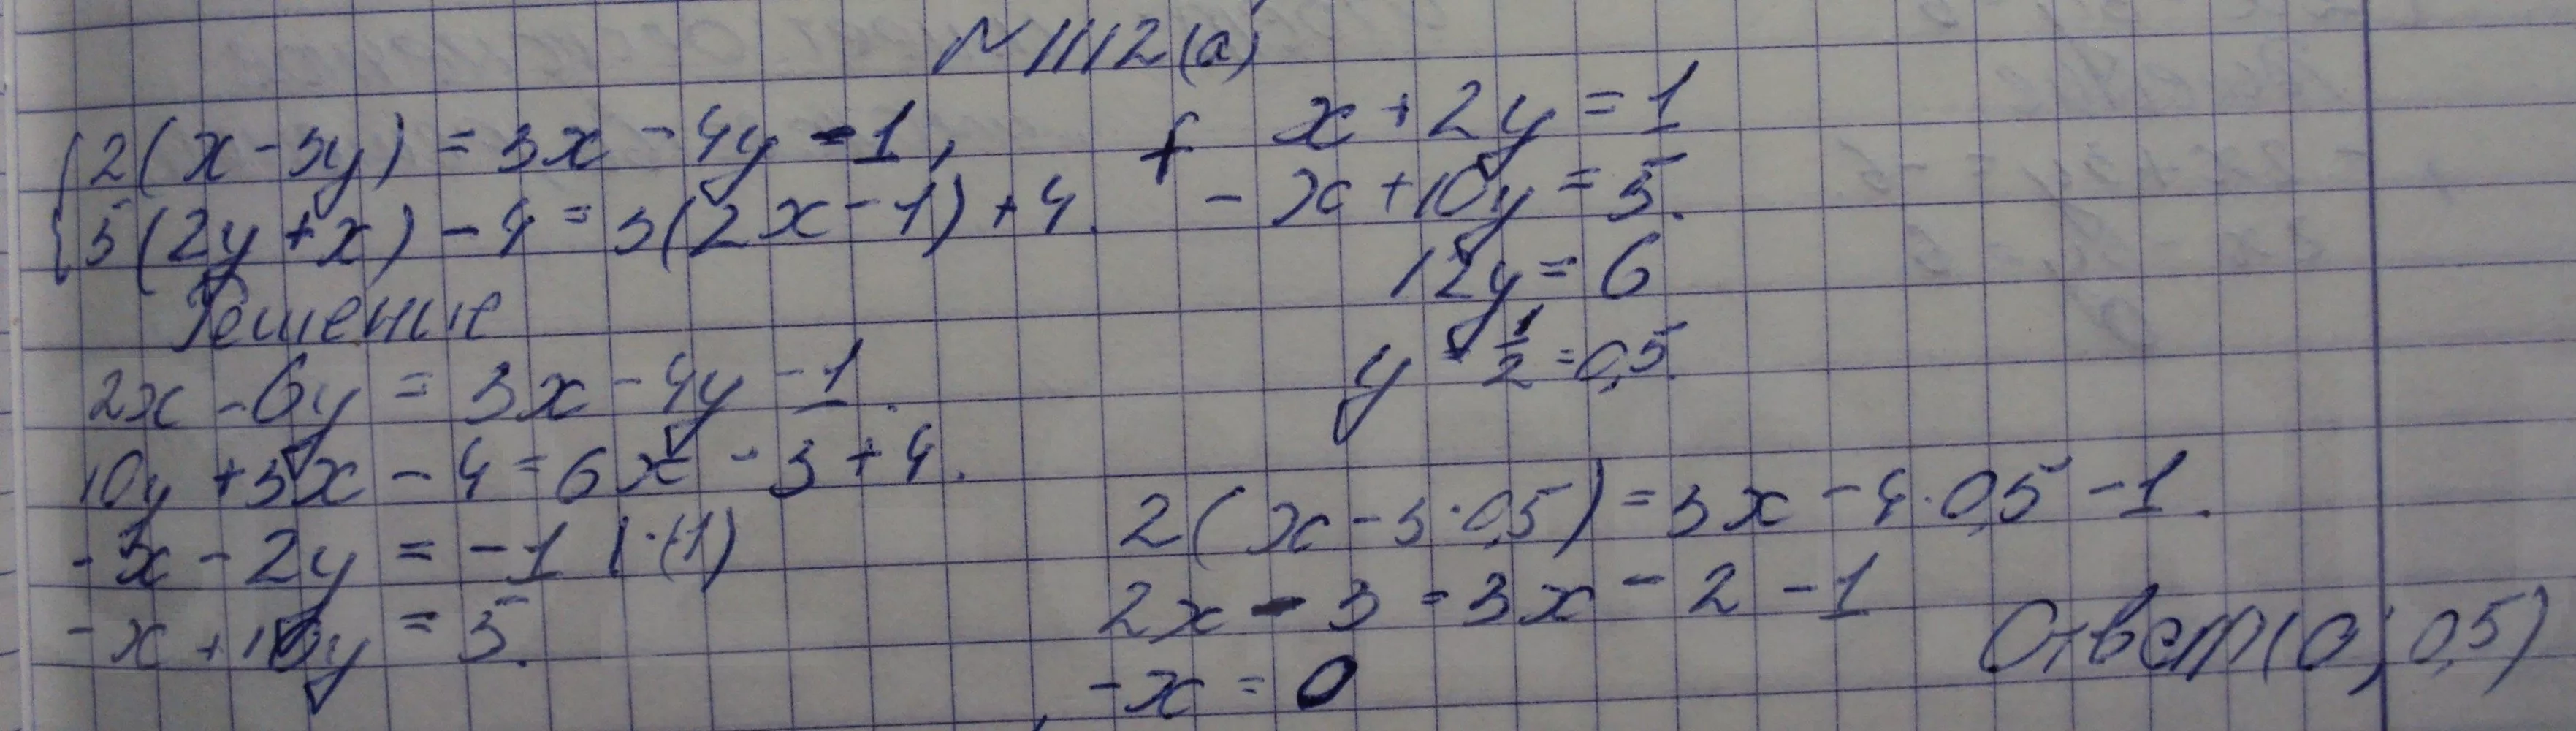 №1112(а)
2(x-3y) = 3x - 4y - 1,
5(2y+x) - 4 = 3(2x-1) + 4.
Решение
2x - 6y = 3x - 4y - 1.
10y + 5x - 4 = 6x - 3 + 4.
-x - 2y = -1 |·(-1)
-x + 10y = 5.
+ x + 2y = 1
- x + 10y = 5.
12y = 6
y = 1/2 = 0,5.
2(x - 3·0,5) = 3x - 4·0,5 - 1.
2x - 3 = 3x - 2 - 1
-x = 0
Ответ (0; 0,5)